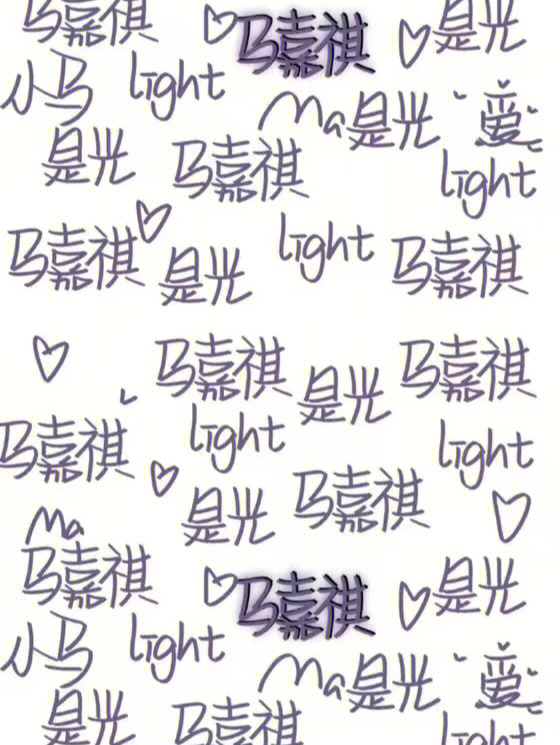 马嘉祺 马嘉祺 是光
小马 light Ma是光 爱
是光 马嘉祺 light
马嘉祺 是光 light 马嘉祺
马嘉祺 是光 马嘉祺
马嘉祺 light light
是光 马嘉祺
Ma
马嘉祺 马嘉祺 是光
小马 light Ma是光 爱
是光 马嘉祺 light